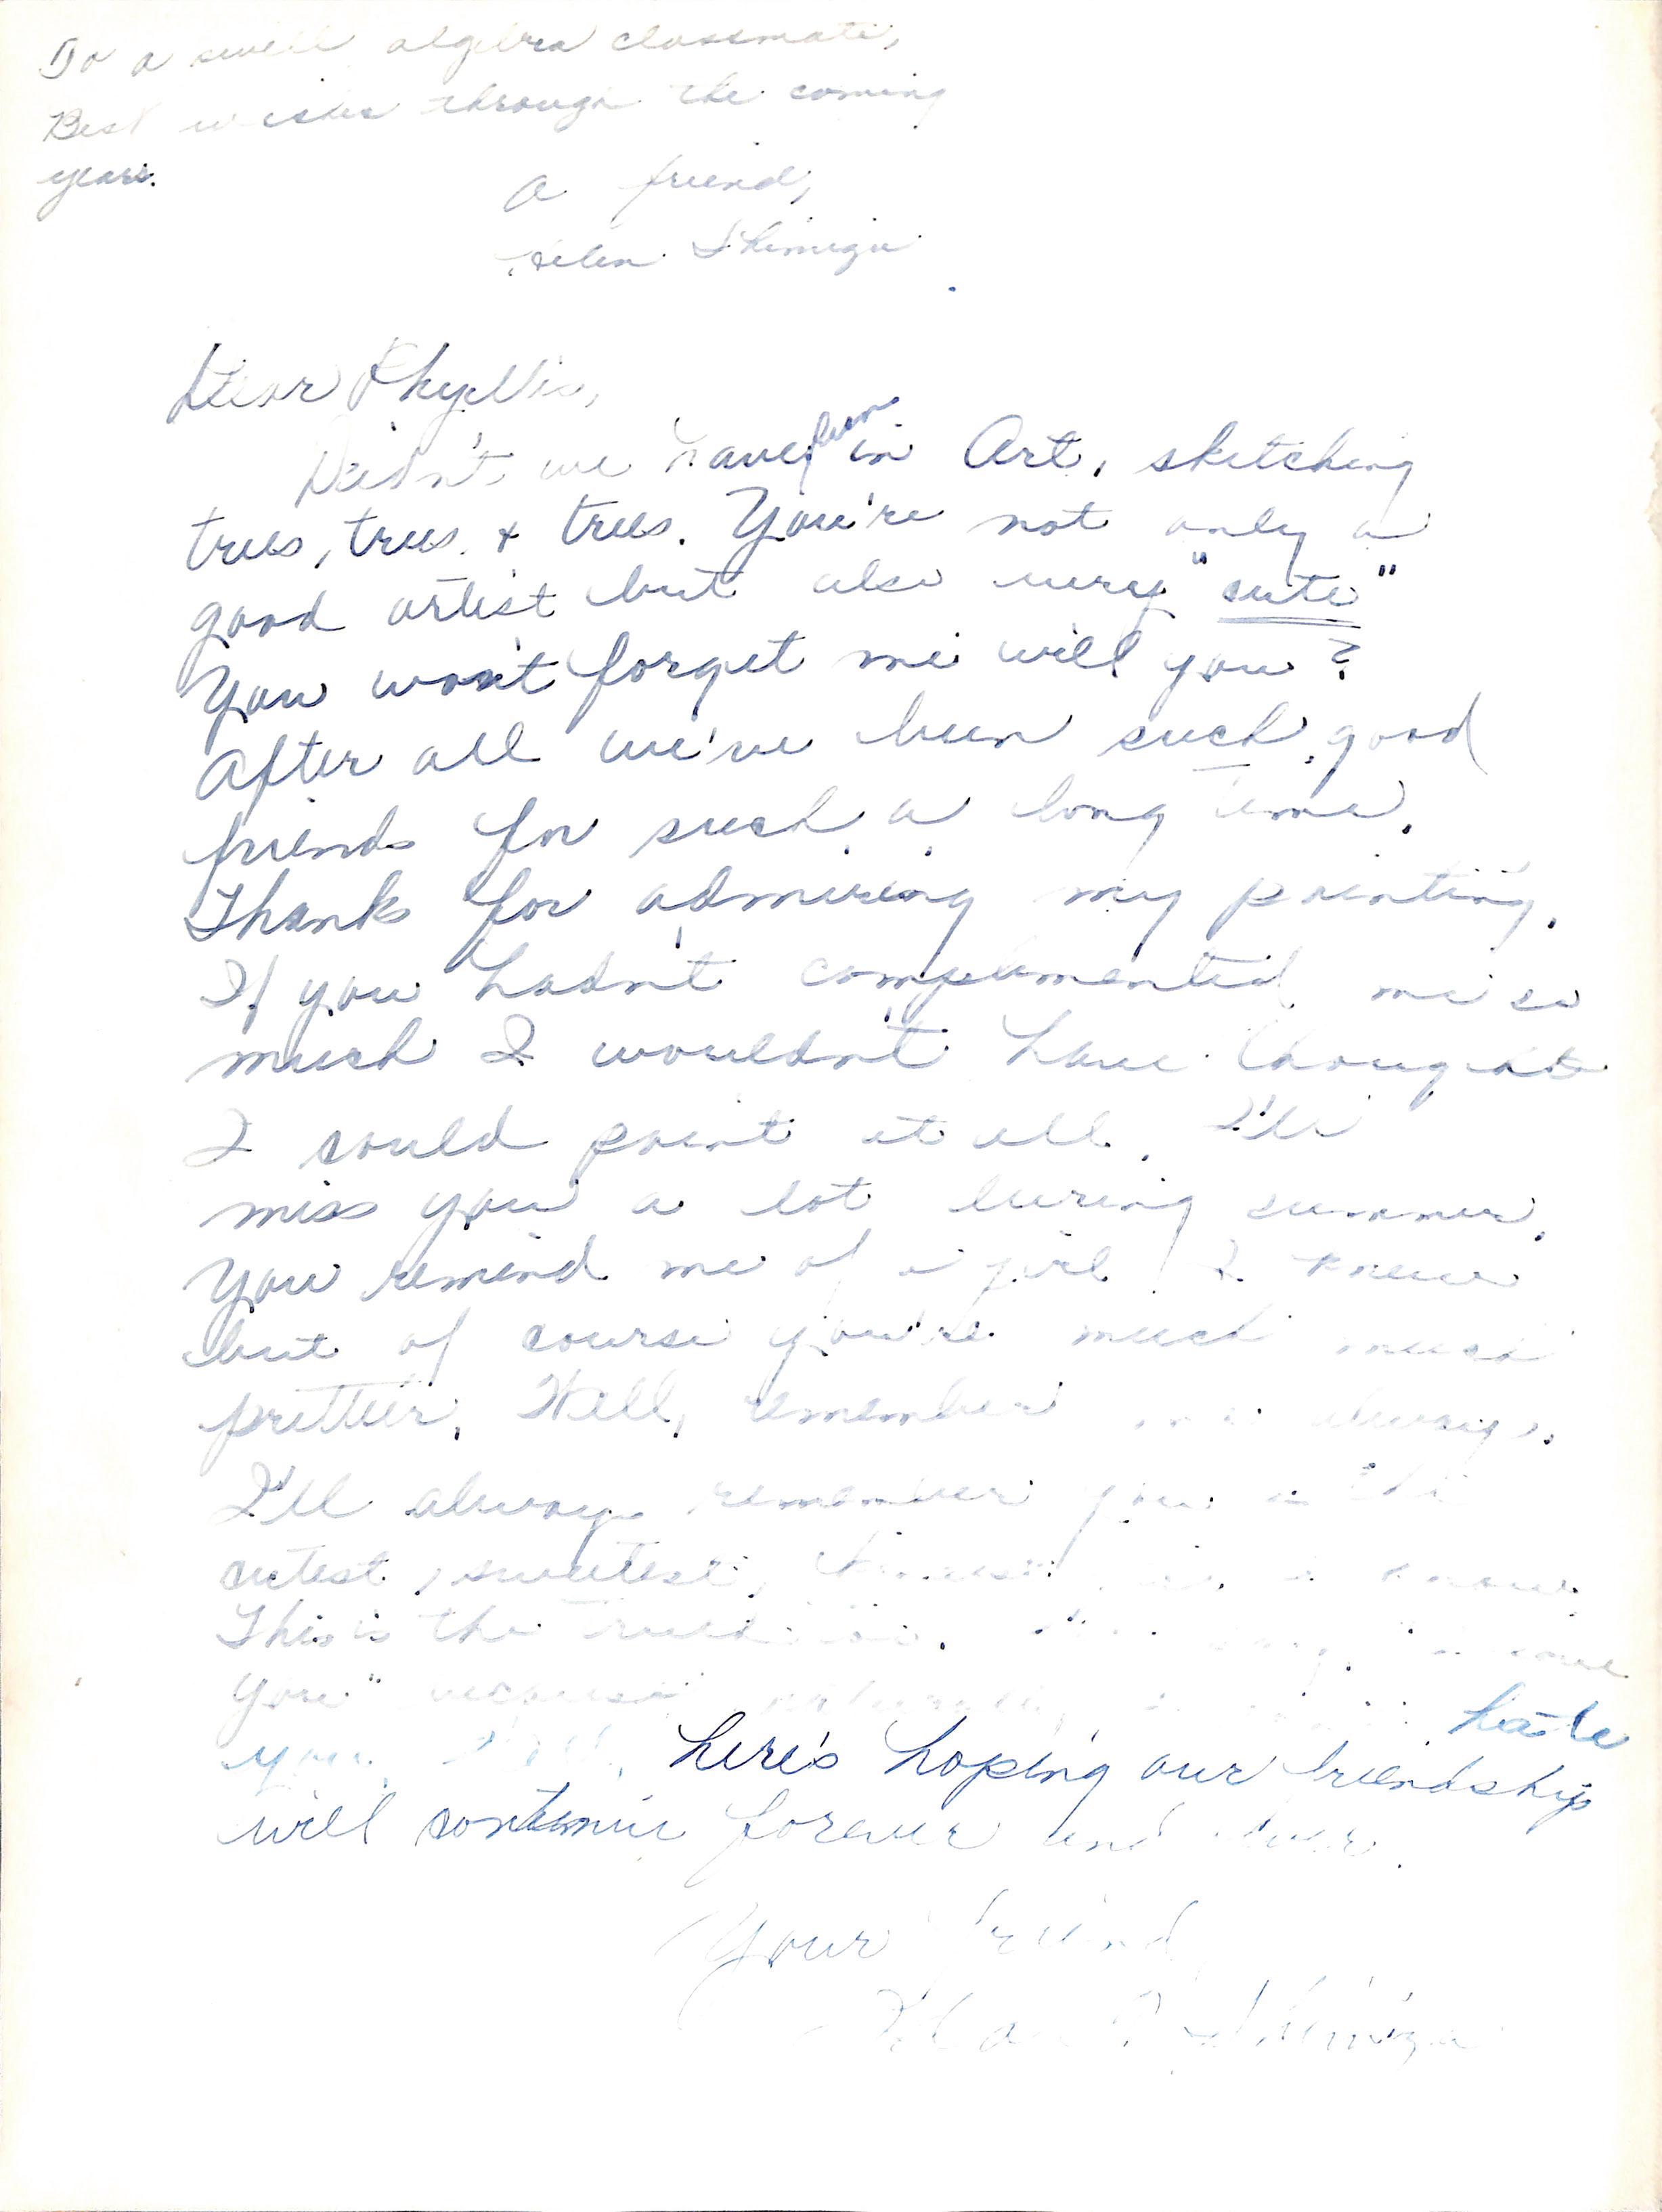 To a swell algebra classmate,
Best wishes through the coming
years.
A friend,
Helen Shimizu
Dear Phyllis,
Didn't we have fun in Art, sketching
trees, trees & trees. You're not only a
good artist but also very "cute"
You won't forget me will you?
After all we've been such good
friends for such a long time.
Thanks for admiring my painting.
If you hadn't complimented me so
much I wouldn't have thought
I could paint at all. I'll
miss you a lot during summer.
You remind me of a girl I knew
but of course you're much much
prettier. Well, remember me always.
I'll always remember you as the
cutest, sweetest, know.
This is the
you" because hate
you. here's hoping our friendship
will continue forever and ever.
Your friend,
Shimizu